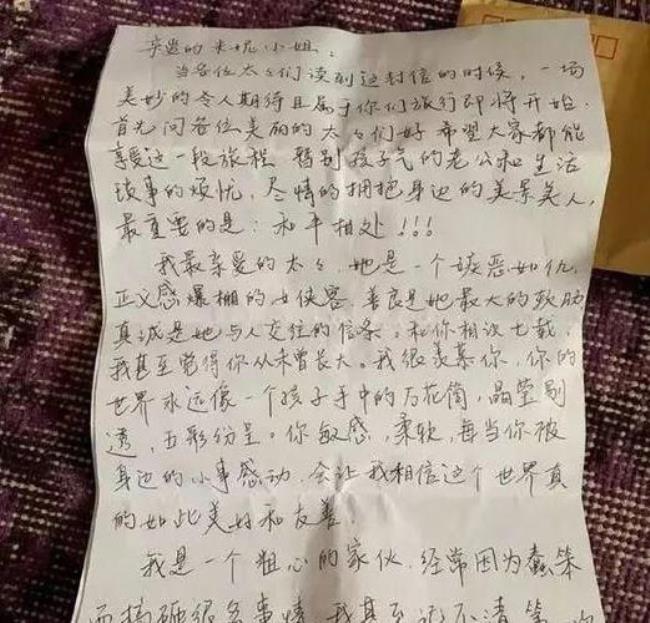 亲爱的卡妮小姐:
当各位太太们读到这封信的时候,一场
美妙的令人期待且属于你们旅行即将开始.
首先问各位美丽的太太们好 希望大家都能
享受这一段旅程 暂别孩子气的老公和生活
琐事的烦忧,尽情的拥抱身边的美景美人,
最重要的是:和平相处!!!
我最亲爱的太太,她是一个嫉恶如仇,
正义感爆棚的女侠客,善良是她最大的软肋
真诚是她与人交往的信条。和你相识七载,
我甚至觉得你从未曾长大。我很羡慕你,你的
世界永远像一个孩子手中的万花筒,晶莹剔
透,五彩纷呈。你敏感,柔软,每当你被
身边的小事感动,会让我相信这个世界真
的如此美好和友善!
我是一个粗心的家伙,经常因为蠢笨
而搞砸很多事情,我甚至记不清第一次